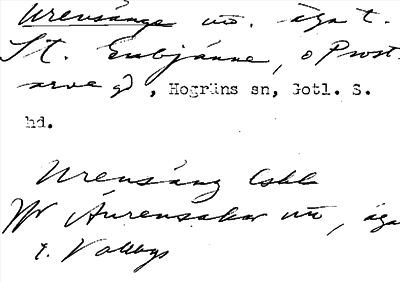 Urensänge uö. äga t.
St. Enbjänne, o Prost-
arve gd, Hogräns sn, Gotl. S.
hd.
Urensäng
Äurensakar uö, äga
t. Vallbys